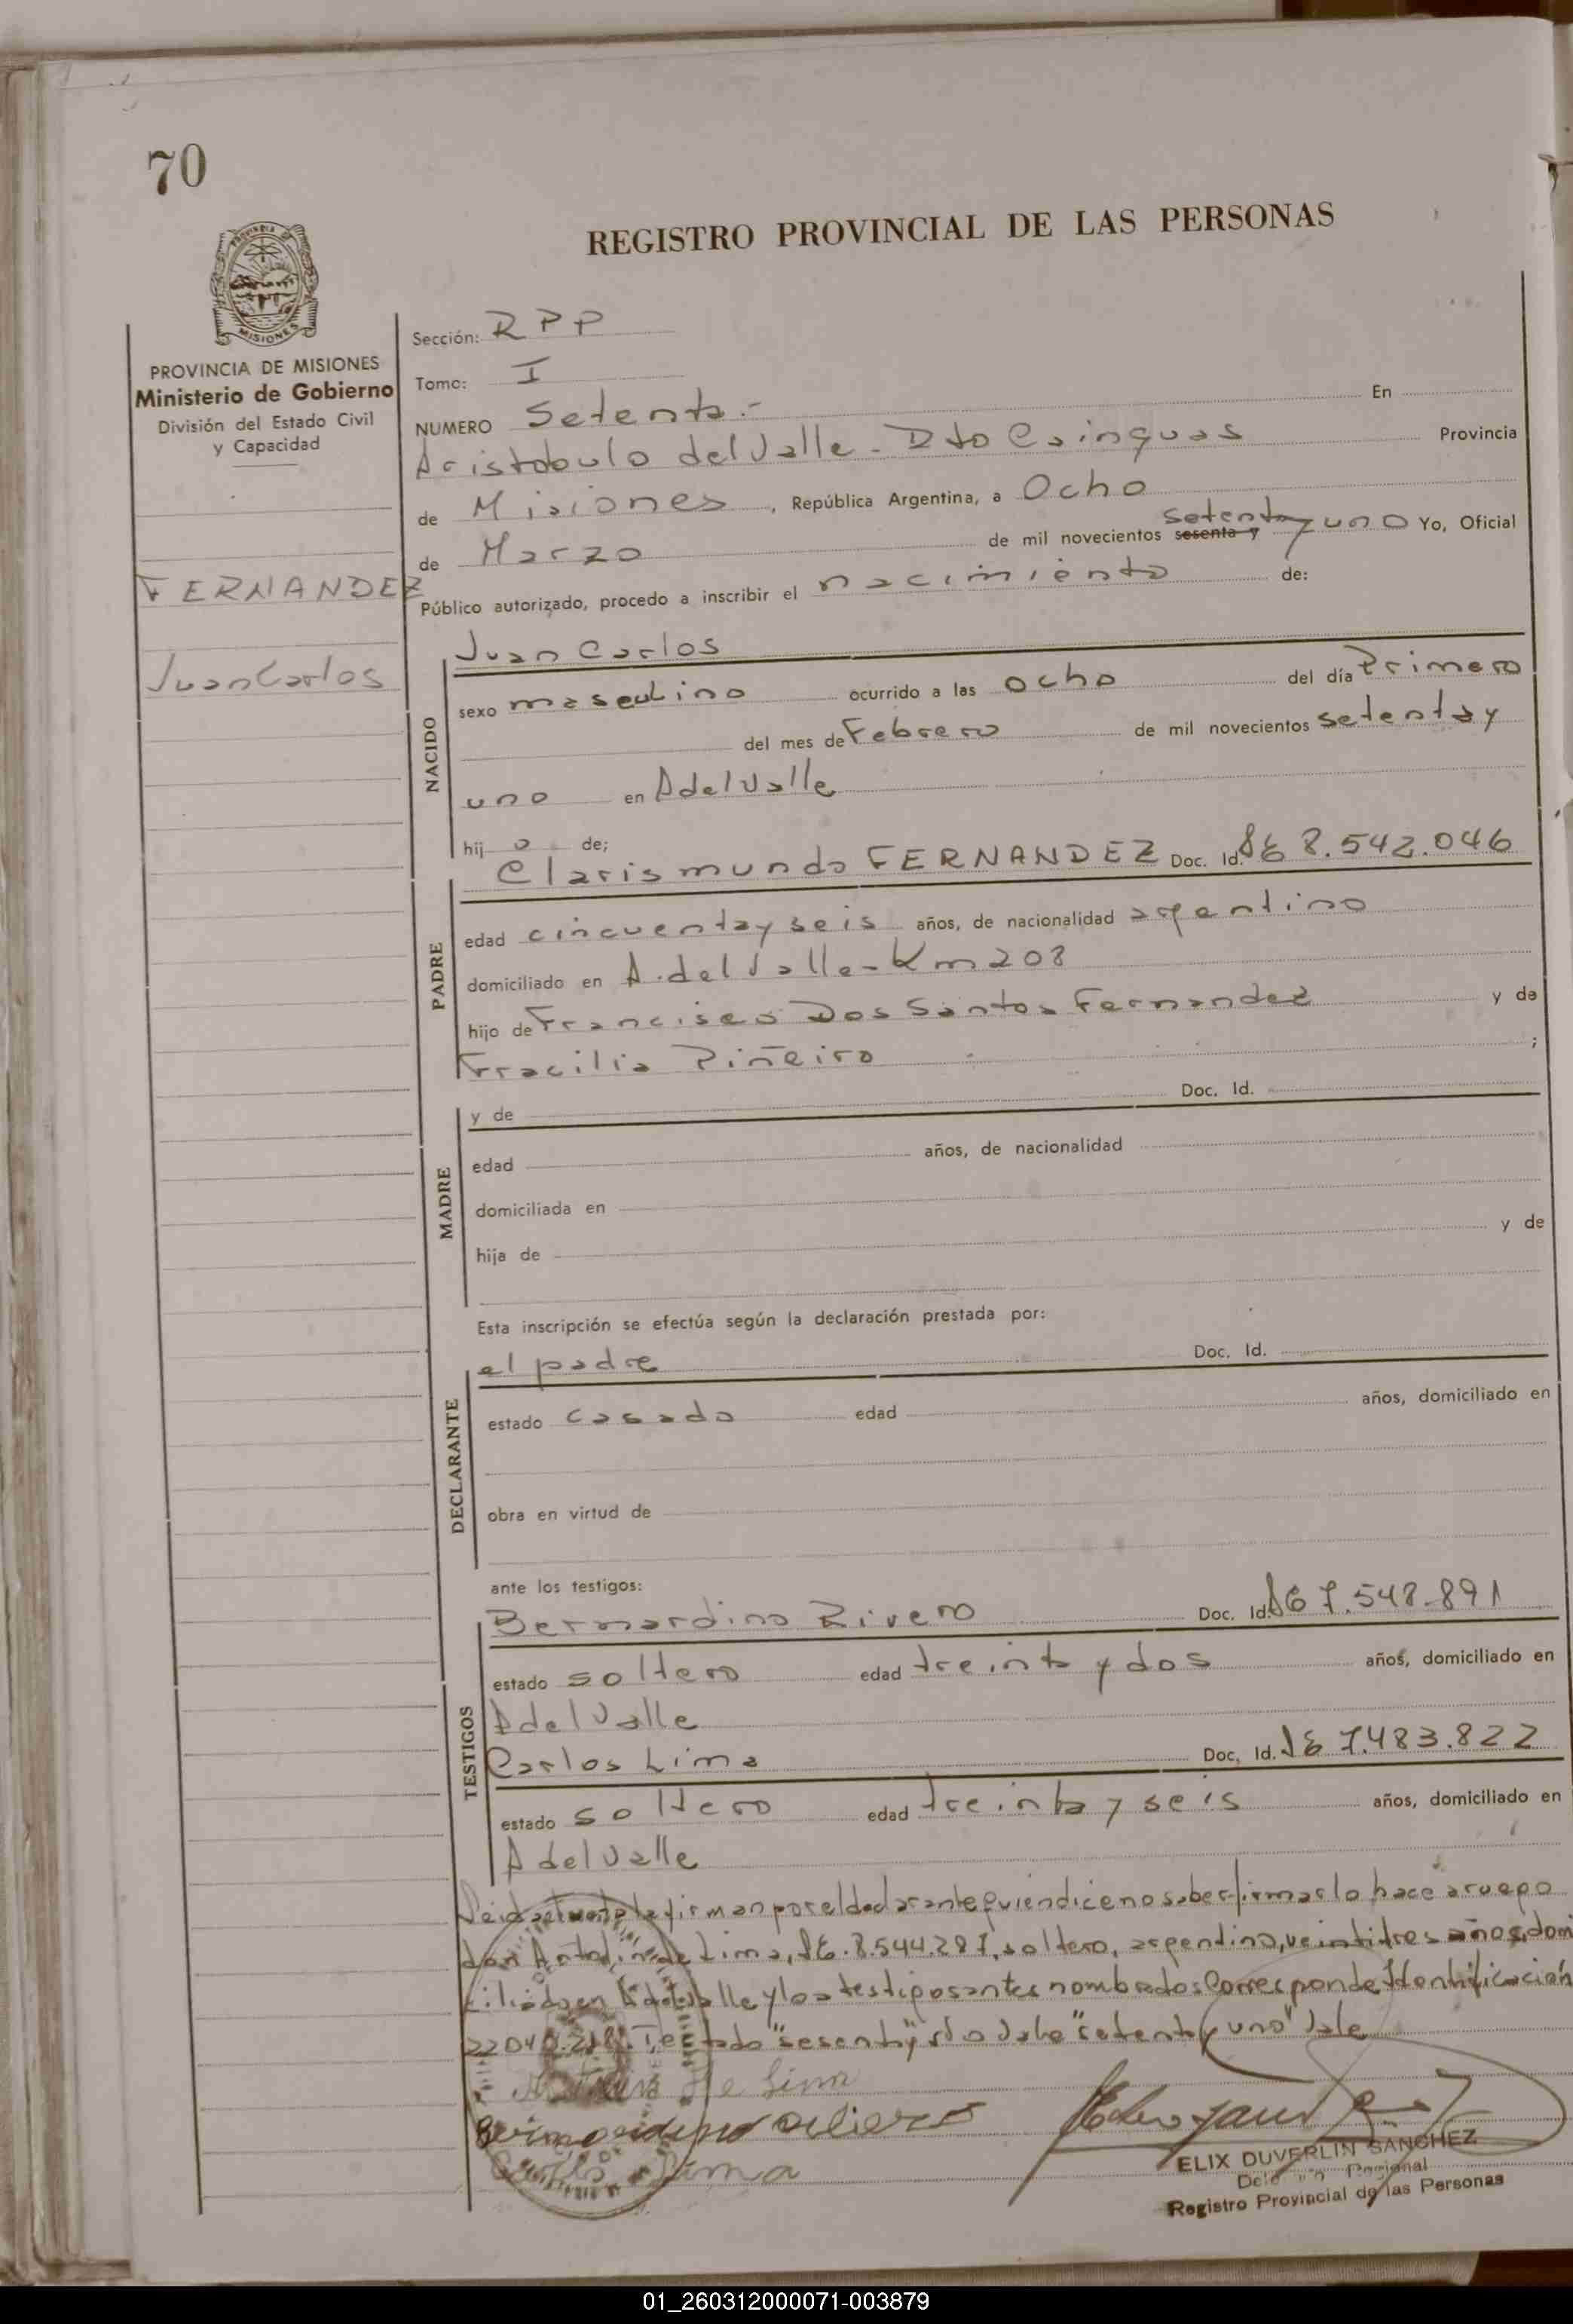 70
REGISTRO PROVINCIAL DE LAS PERSONAS
PROVINCIA DE MISIONES
MISIONES
PROVINCIA DE MISIONES
Ministerio de Gobierno
División del Estado Civil
y Capacidad
FERNANDEZ
Juan Carlos
Sección: RPP
Tomo: I
NUMERO Setenta.- En
Aristobulo del Valle - Dto Cainguas Provincia
de Misiones, República Argentina, a Ocho
de Marzo de mil novecientos sesenta y setenta y uno Yo, Oficial
Público autorizado, procedo a inscribir el nacimiento de:
NACIDO
Juan Carlos
sexo masculino ocurrido a las ocho del día Primero
del mes de Febrero de mil novecientos setenta y
uno en A del Valle
hij o de;
PADRE
Clarismundo FERNANDEZ Doc. Id. 8.542.046
edad cincuenta y seis años, de nacionalidad argentino
domiciliado en A. del Valle - Km 208
hijo de Francisco Dos Santos Fernandez y de
Fracilia Piñeiro ;
MADRE
y de Doc. Id.
edad años, de nacionalidad
domiciliada en
hija de y de
Esta inscripción se efectúa según la declaración prestada por:
DECLARANTE
el padre Doc. Id.
estado casado edad años, domiciliado en
obra en virtud de
ante los testigos:
TESTIGOS
Bernardino Rivero Doc. Id. 7.548.891
estado soltero edad treinta y dos años, domiciliado en
A del Valle
Carlos Lima Doc. Id. 7.483.822
estado soltero edad treinta y seis años, domiciliado en
A del Valle
Leida el acta la firman por el declarante quien dice no saber firmar lo hace a ruego
don de Lima, 8.544.287, soltero, argentino, veintitres años, domi
ciliado en A del Valle y los testigos antes nombrados Corresponde Identificación
Testado "sesenta y" no vale "setenta y uno" Vale
de Lima
Carlos Lima
ELIX DUVERLIN SANCHEZ
Regional
Registro Provincial de las Personas
01_260312000071-003879